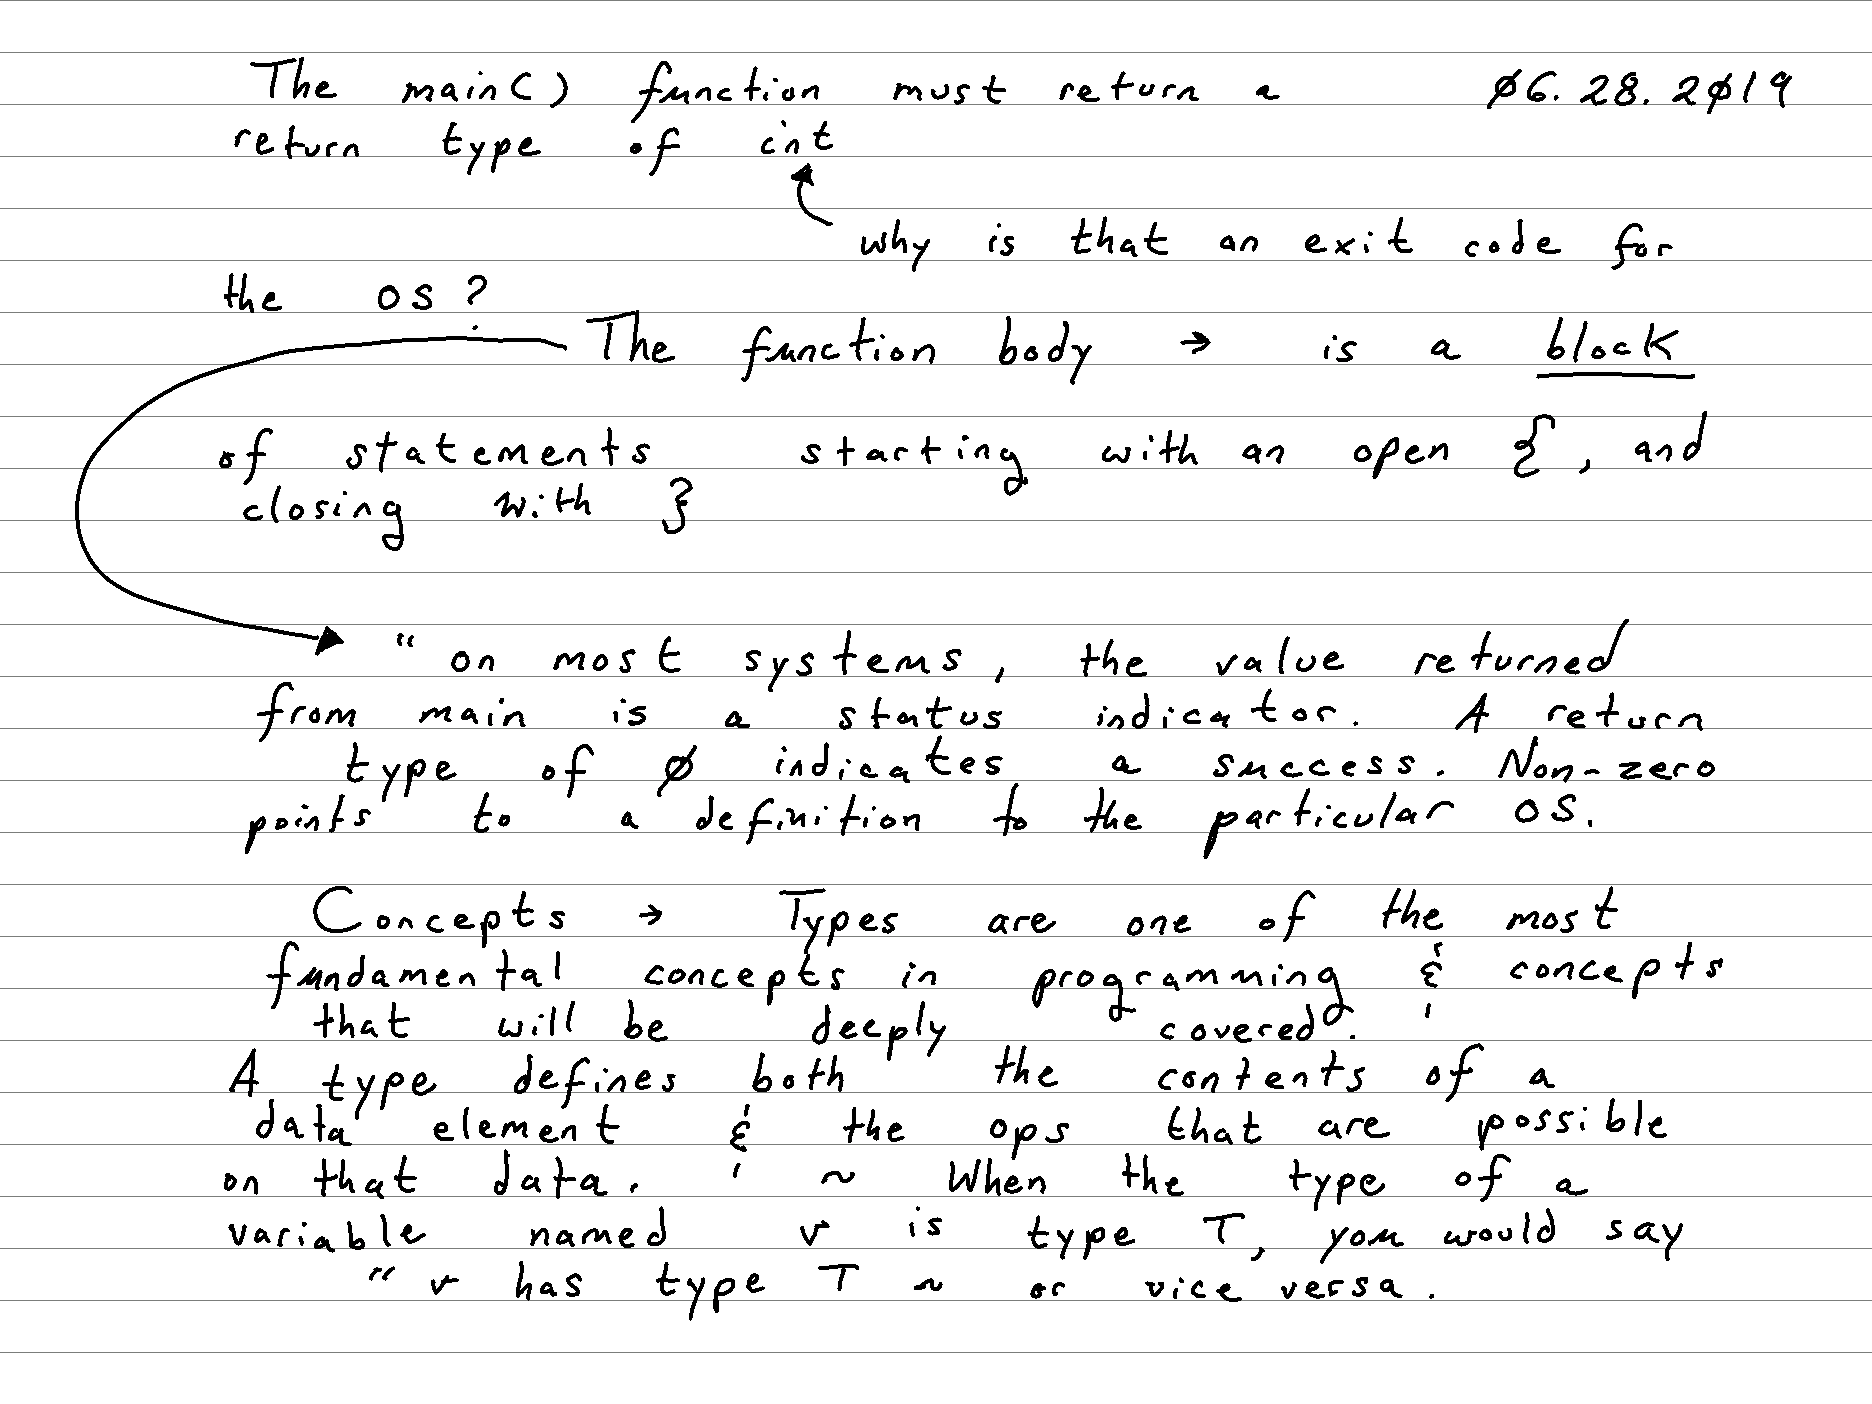 The main() function must return a 06.28.2019
return type of int
why is that an exit code for
the OS?
The function body → is a block
of statements starting with an open {, and
closing with }
“on most systems, the value returned
from main is a status indicator. A return
type of 0 indicates a success. Non-zero
points to a definition to the particular OS.
Concepts → Types are one of the most
fundamental concepts in programming & concepts
that will be deeply covered.
A type defines both the contents of a
data element & the ops that are possible
on that data. ~ When the type of a
variable named v is type T, you would say
“v has type T ~ or vice versa.